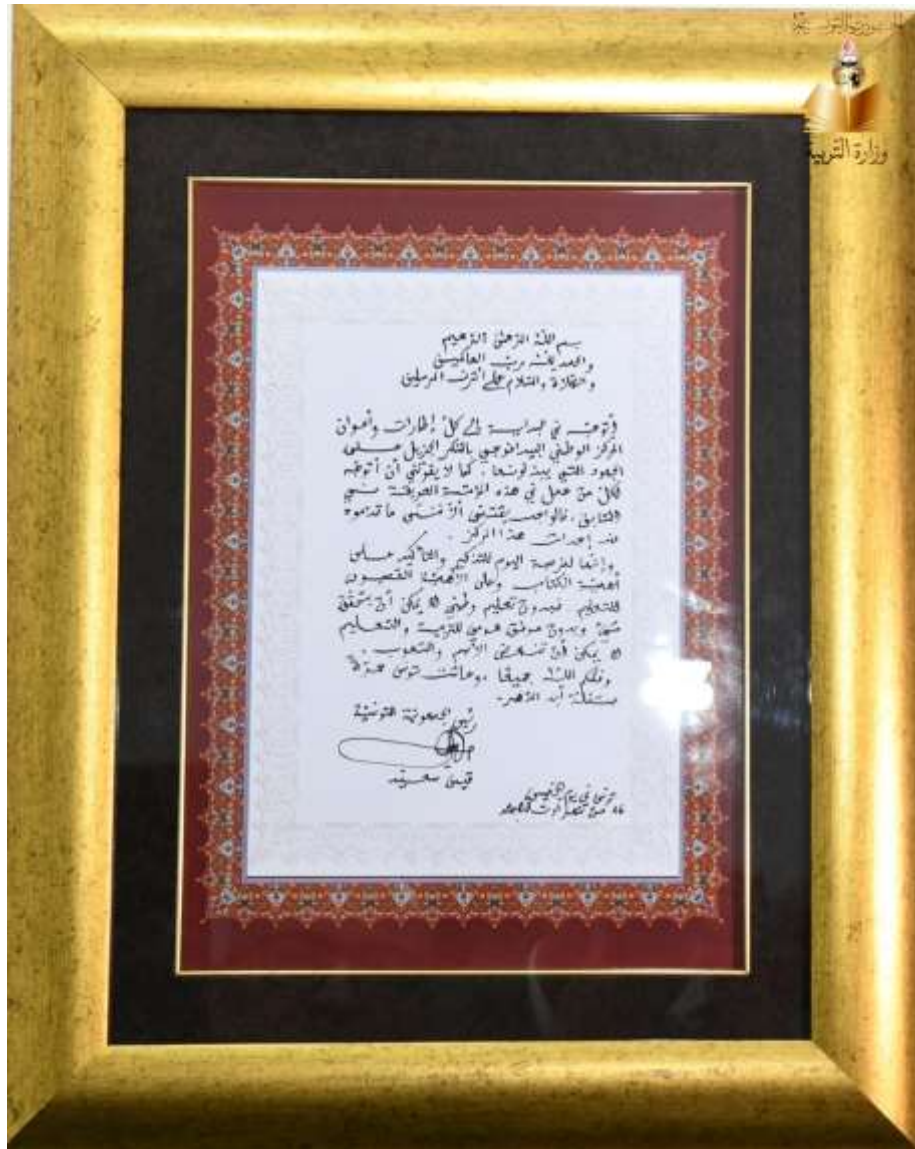 الجمهورية التونسية
وزارة التربية
بسم الله الرحمن الرحيم
والحمد لله رب العالمين
والصلاة والسلام على أشرف المرسلين
أتوجه في البداية إلى كل إطارات وأعوان
المركز الوطني البيداغوجي بالشكر الجزيل على
الجهود التي يبذلونها، كما لا يفوتني أن أتوجه
لكل من عمل في هذه المؤسسة العريقة في
السابق، فالواجب يقتضي ألا ننسى ما قدموه
منذ إحداث هذا المركز.
وإنها لفرصة اليوم للتذكير والتأكيد على
أهمية الكتاب وعلى الأهمية القصوى
للتعليم. فبدون تعليم وطني لا يمكن أن يتحقق
شيء وبدون مرفق عمومي للتربية والتعليم
لا يمكن أن تنهض الأمم والشعوب.
وفقكم الله جميعا، وعاشت تونس حرة
مستقلة أبد الدهر.
رئيس الجمهورية التونسية
قيس سعيد
تونس في يوم الخميس
من شهر أوت 2023